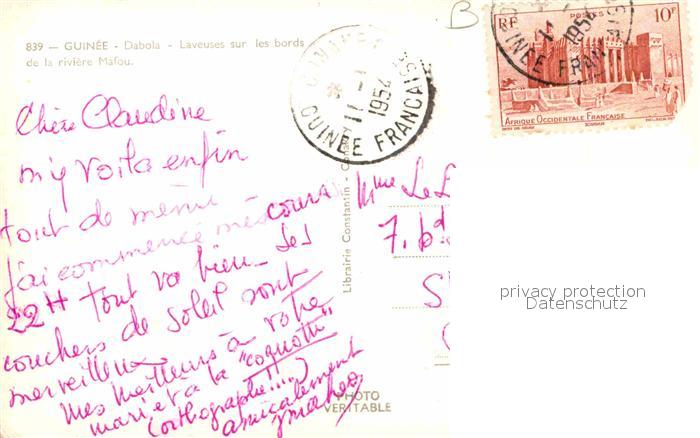 839 - GUINÉE - Dabola - Laveuses sur les bords
de la rivière Mafou.
B
RF POSTES 10F
AFRIQUE OCCIDENTALE FRANÇAISE
11-1
1954
GUINÉE FRANÇAISE
Chère Claudine
m'y voilà enfin
tout de même
j'ai commencé mes cours
22H tout va bien - les
couchers de soleil sont
merveilleux
mes meilleurs à votre
mari et à la "coquotte"
(orthographe!....)
amicalement
Librairie Constantin - Conakry
Mme Le
7. bd.
PHOTO
VERITABLE
privacy protection
Datenschutz